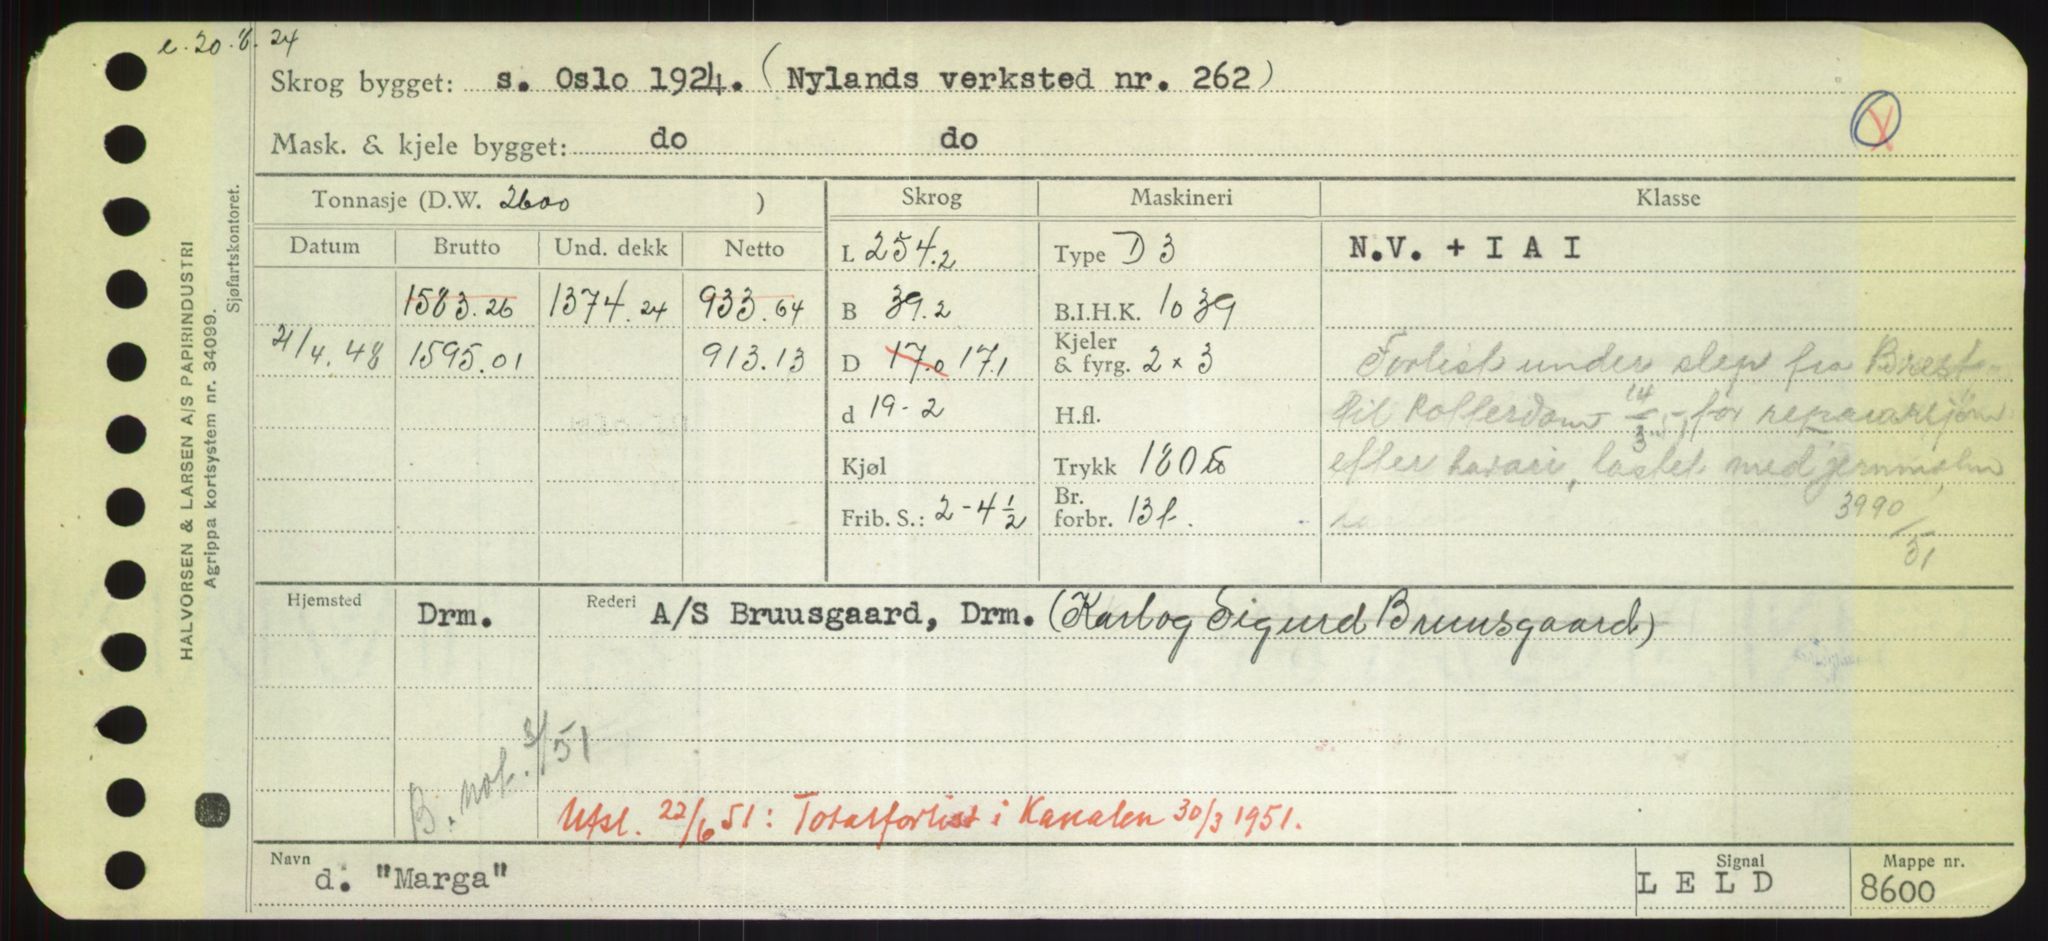 e. 20.8.24
Skrog bygget: s. Oslo 1924. (Nylands verksted nr. 262)
Mask. & kjele bygget: do do
Tonnasje (D.W. 2600 )
Skrog
Maskineri
Klasse
Datum Brutto Und. dekk Netto
1583.26 1374.24 933.64
21/4.48 1595.01 913.13
L 254.2
B 39.2
D 17.0 17.1
d 19-2
Kjøl
Frib. S.: 2-4 1/2
Type D 3
B.I.H.K. 1039
Kjeler
& fyrg. 2 x 3
H.fl.
Trykk 180
Br.
forbr. 13 t.
N.V. + I A I
Forlist under slep fra Brest
til Rotterdam 14/3 for reparasjon
efter havari, lastet med jernmalm
3990/51
Hjemsted Drm. Rederi A/S Bruusgaard, Drm. (Karl og Sigurd Bruusgaard)
B. not. 3/51
Utsl. 22/6 51: Totalforlist i Kanalen 30/3 1951.
Navn d. "Marga"
Signal LELD
Mappe nr. 8600
HALVORSEN & LARSEN A/S PAPIRINDUSTRI
Agrippa kortsystem nr. 34099.
Sjøfartskontoret.